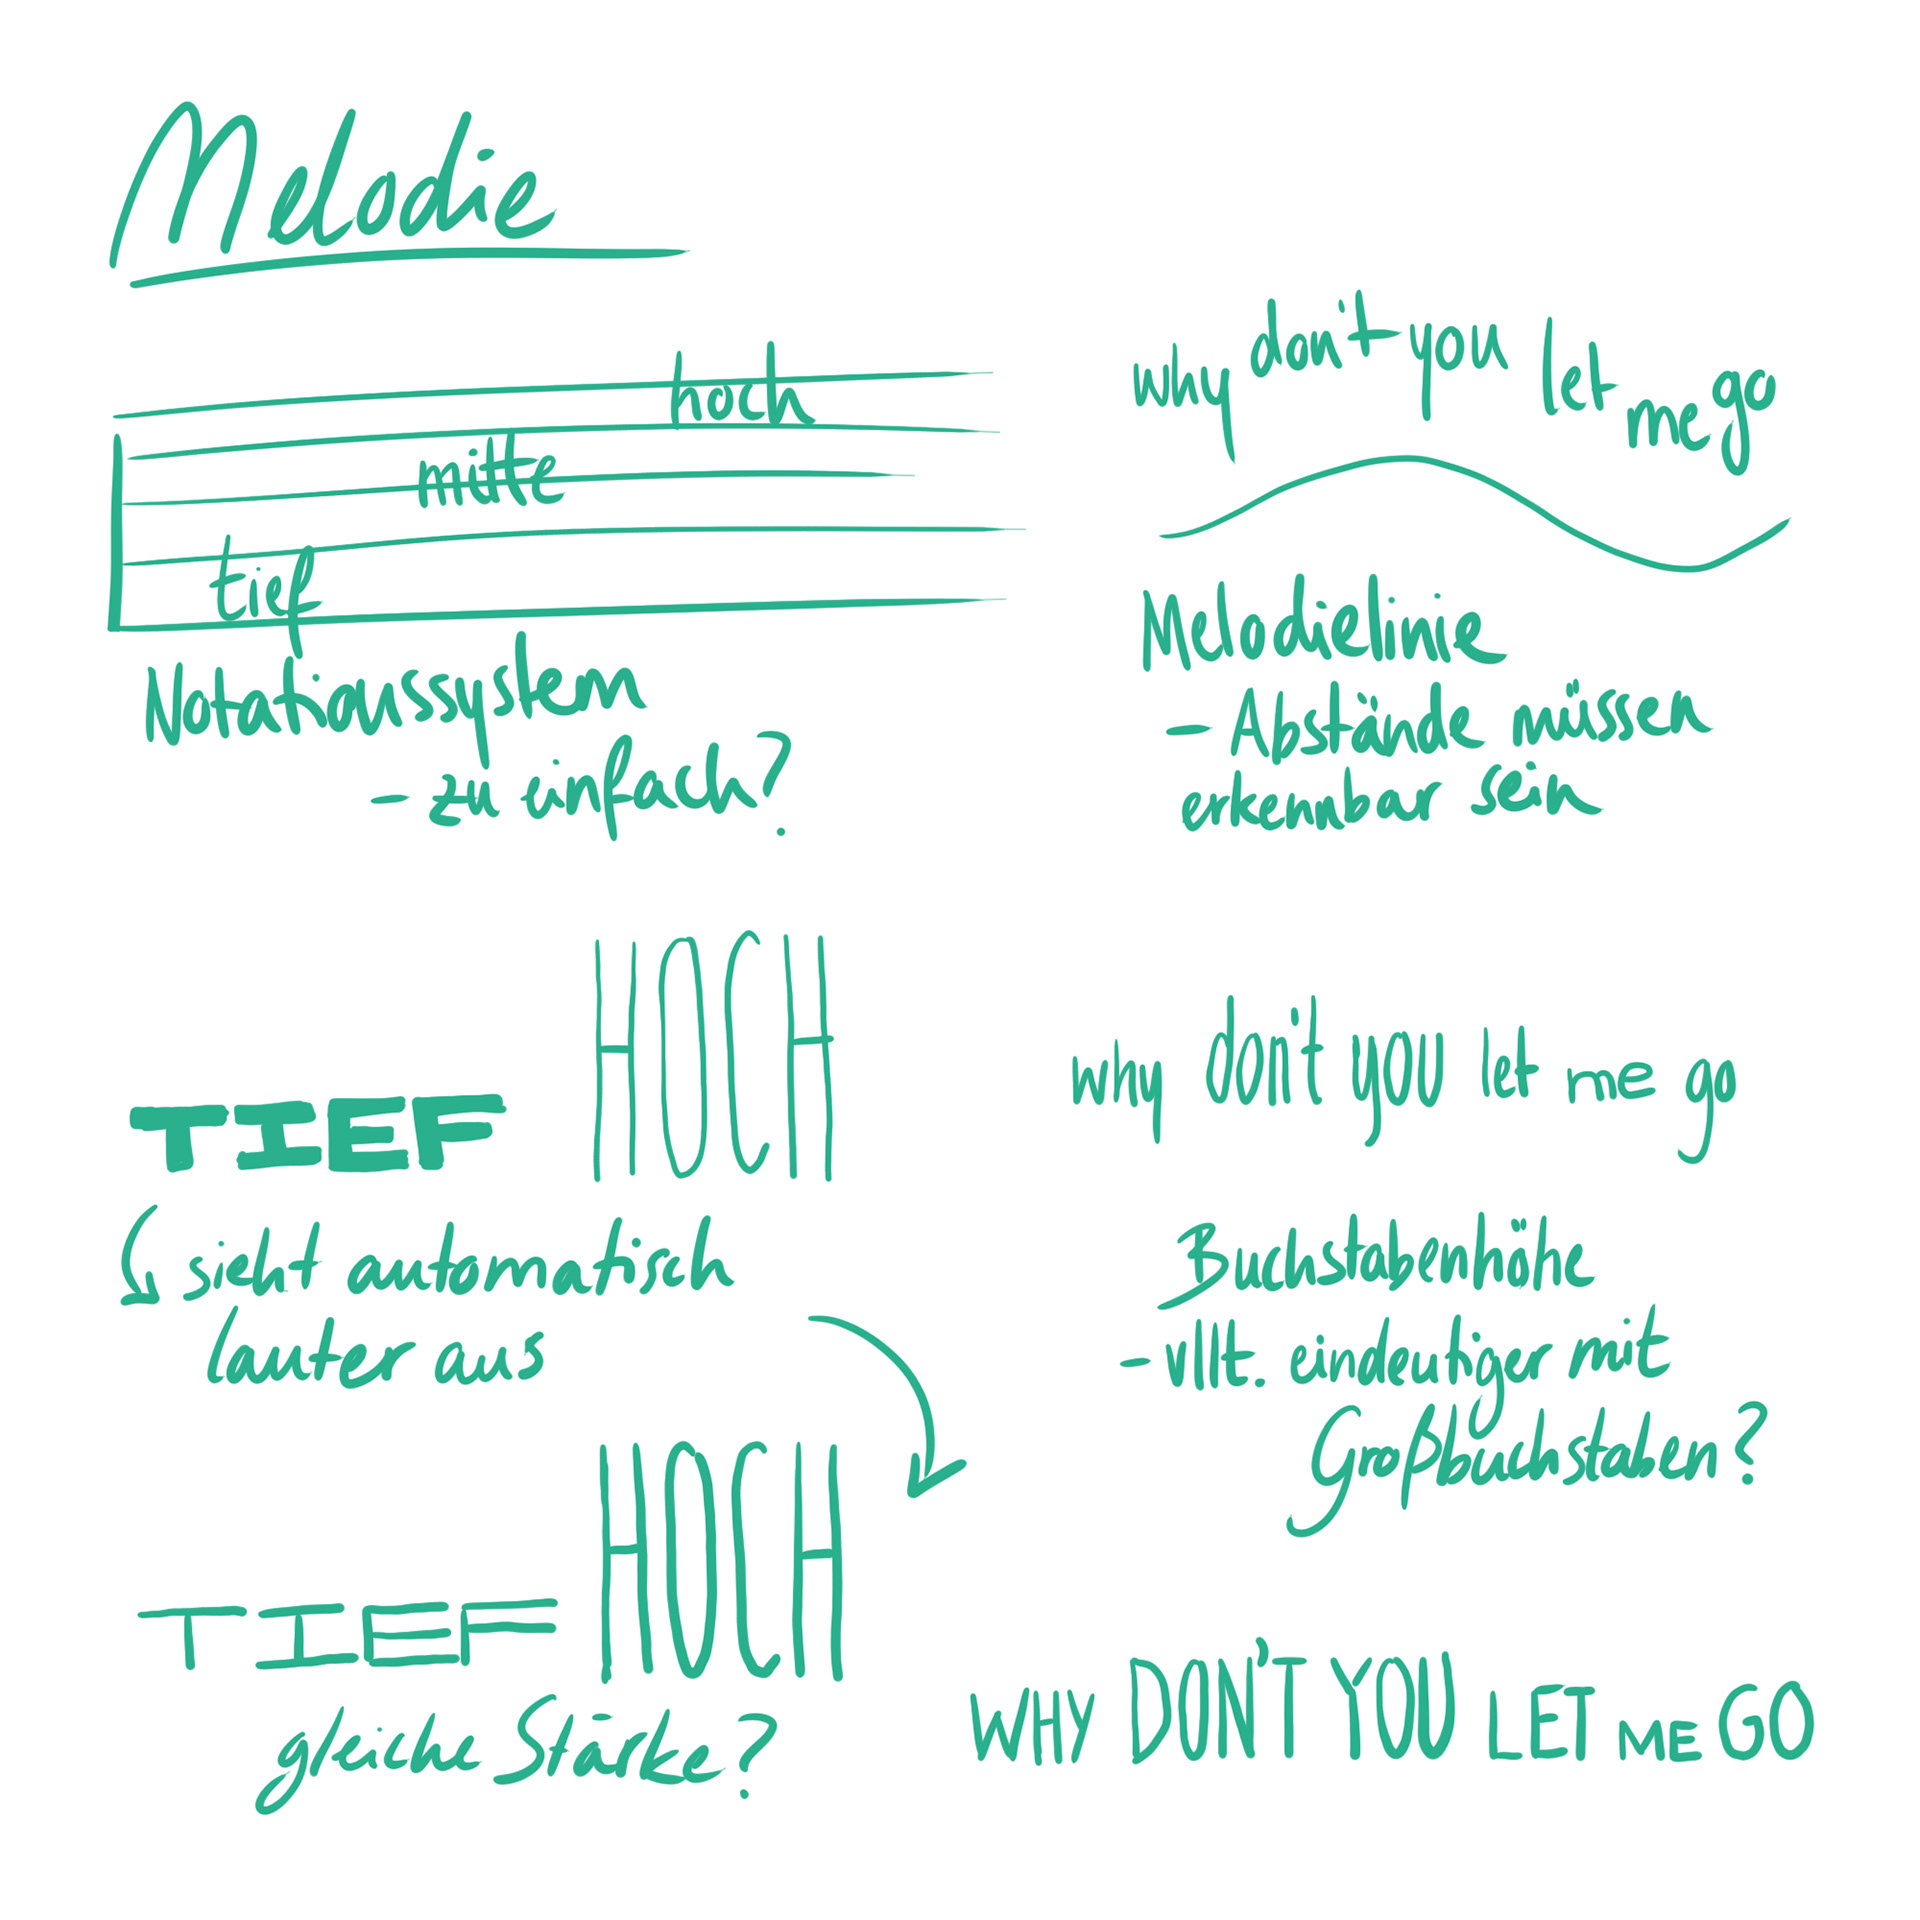 Melodie
hoch
mitte
tief
Notationssystem
- zu einfach?
why don't you let me go
Melodielinie
- Abstände müssen
erkennbar sein
TIEF HOCH
sieht automatisch
lauter aus
TIEF HOCH
gleiche Stärke?
why don't you let me go
Buchstabenhöhe
- vllt. eindeutiger mit
Großbuchstaben?
WHY DON'T YOU LET ME GO